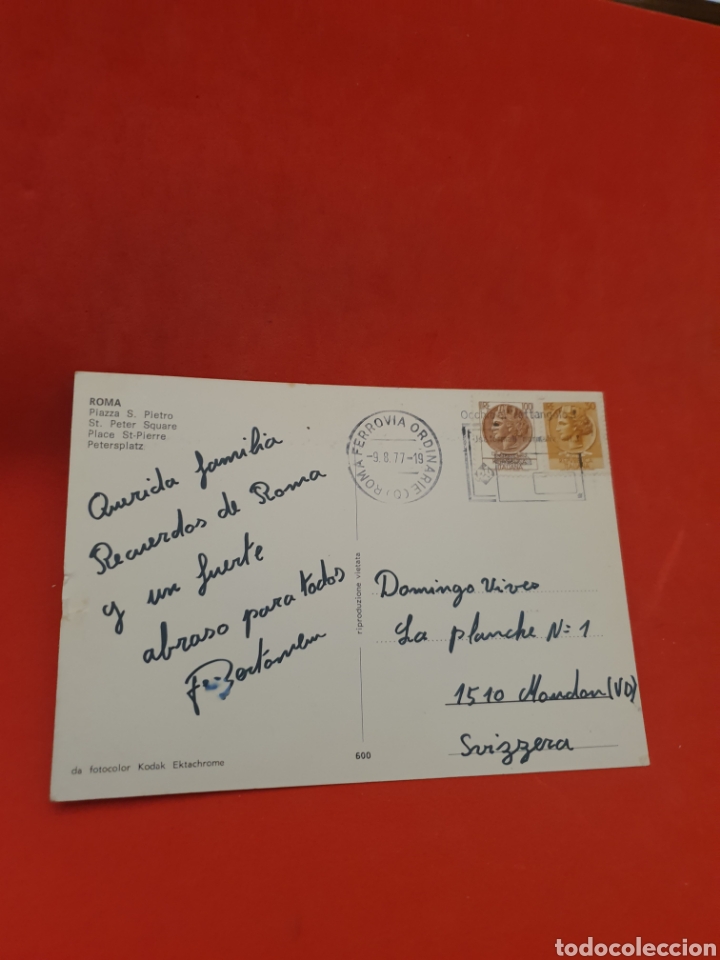 ROMA
Piazza S. Pietro
St. Peter Square
Place St-Pierre
Petersplatz
Querida familia
Recuerdos de Roma
y un fuerte
abraso para todos
da fotocolor Kodak Ektachrome
riproduzione vietata
600
ROMA FERROVIA ORDINARIE
-9.8.77-19
100
50
Domingo Vives
La planche N:1
1510 Moudon (VD)
Svizzera
todocoleccion